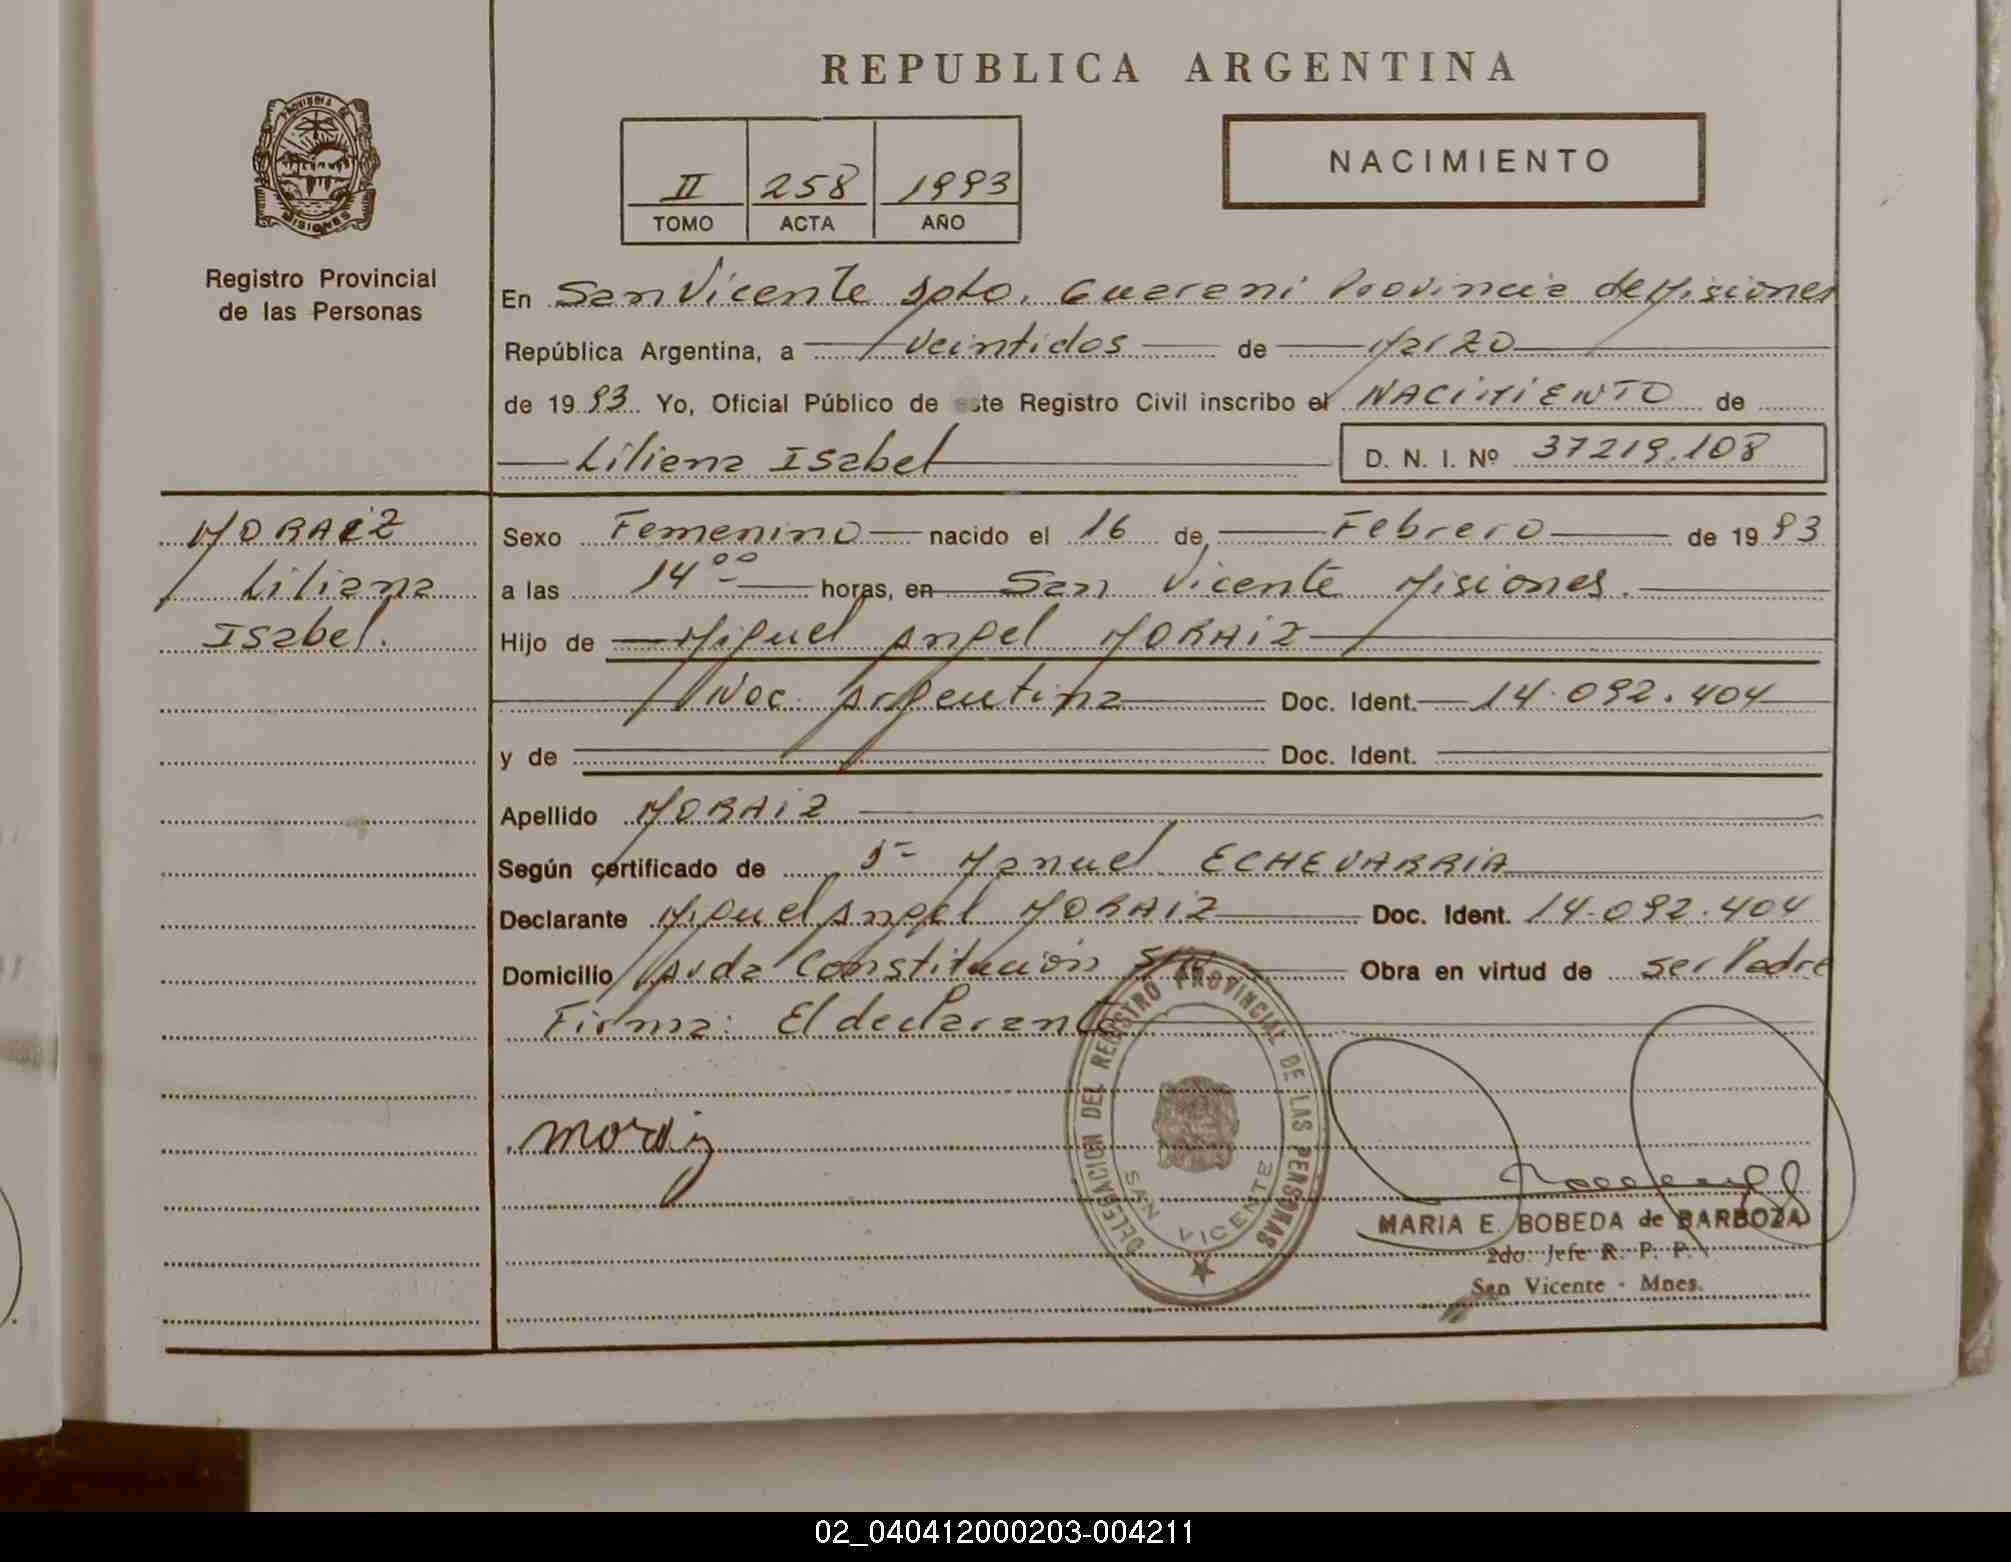 REPUBLICA ARGENTINA
PROVINCIA DE
MISIONES
Registro Provincial
de las Personas
II 258 1993
TOMO ACTA AÑO
NACIMIENTO
En San Vicente Dpto. Guarani Provincia de Misiones
República Argentina, a veintidos de Marzo
de 1993 Yo, Oficial Público de este Registro Civil inscribo el NACIMIENTO de
Liliana Isabel D. N. I. Nº 37219.108
MORAIZ
Liliana
Isabel.
Sexo Femenino nacido el 16 de Febrero de 1993
a las 14 00 horas, en San Vicente Misiones.
Hijo de Miguel Angel MORAIZ
Nac. Argentina Doc. Ident. 14.092.404
y de Doc. Ident.
Apellido MORAIZ
Según certificado de Manuel ECHEVARRIA
Declarante Miguel Angel MORAIZ Doc. Ident. 14.092.404
Domicilio Avda Constitución S/N Obra en virtud de ser Padre
Firma: El declarante
Moraiz
DELEGACION DEL REGISTRO PROVINCIAL DE LAS PERSONAS
SAN VICENTE
MARIA E. BOBEDA de BARBOZA
2do. Jefe R. P. P.
San Vicente - Mnes.
02_040412000203-004211